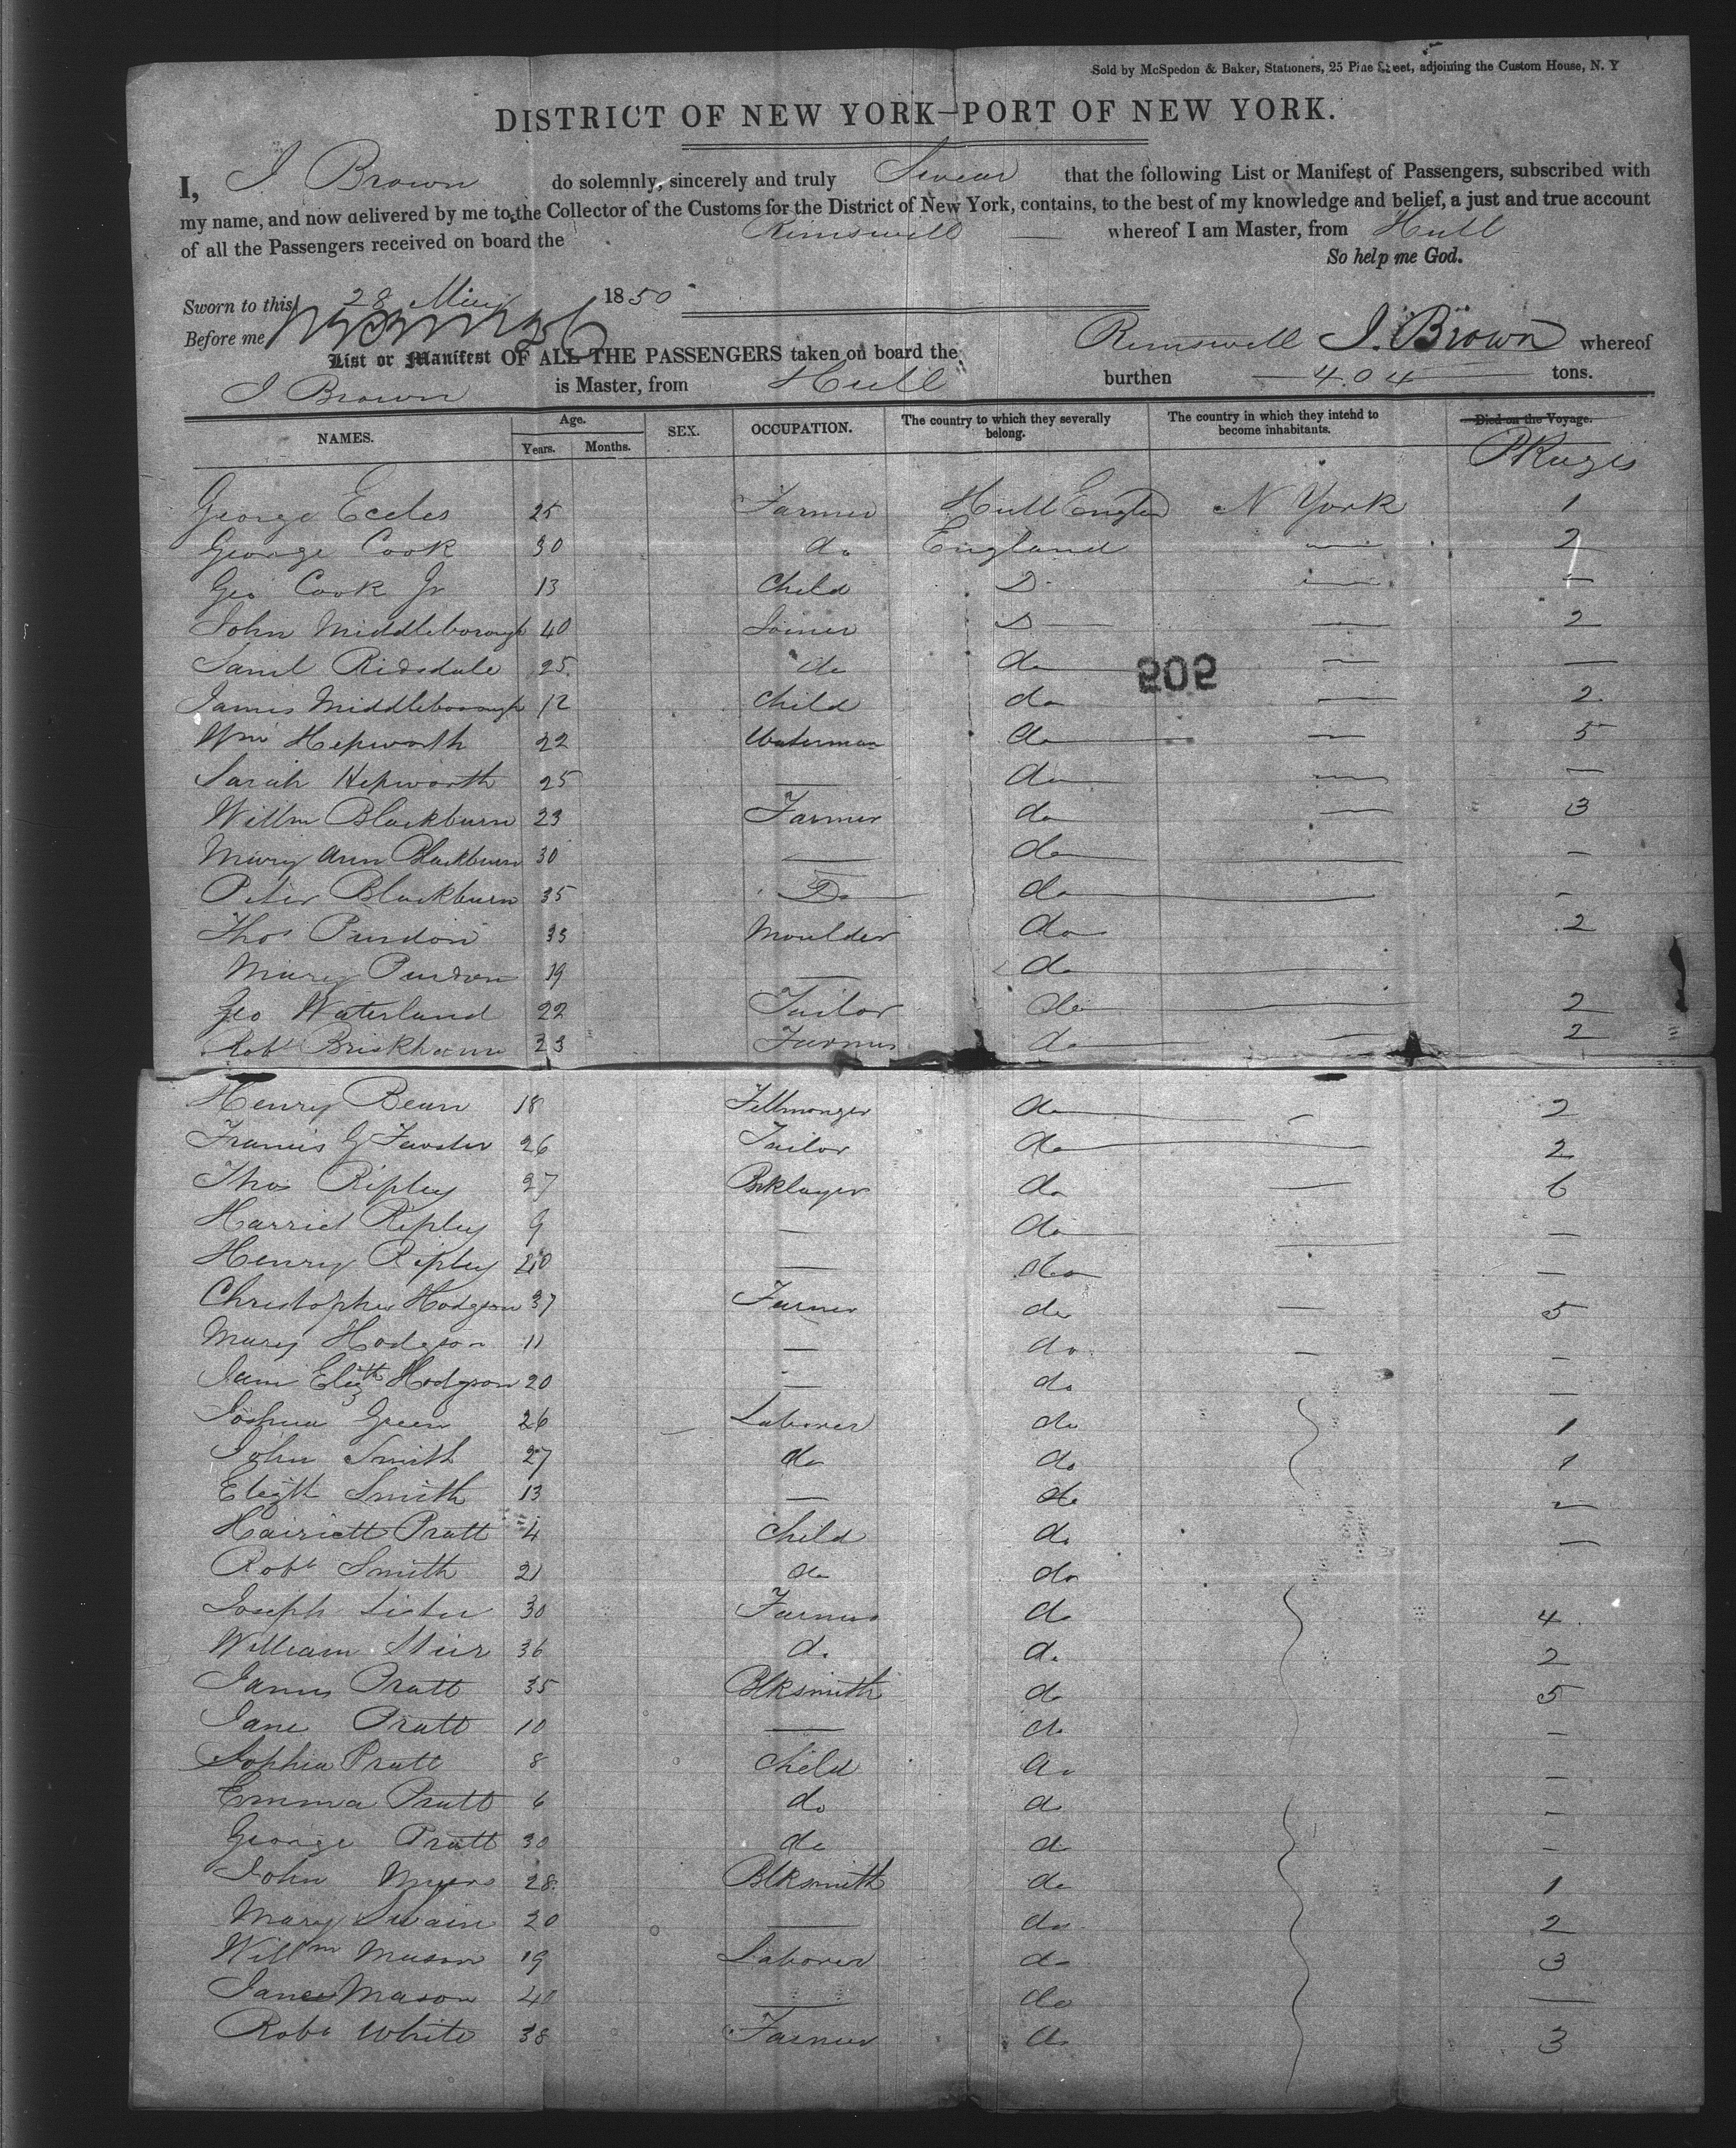 Sold by McSpedon & Baker, Stationers, 25 Pine Street, adjoining the Custom House, N. Y
DISTRICT OF NEW YORK—PORT OF NEW YORK.
I, J Brown do solemnly, sincerely and truly Swear that the following List or Manifest of Passengers, subscribed with
my name, and now delivered by me to the Collector of the Customs for the District of New York, contains, to the best of my knowledge and belief, a just and true account
of all the Passengers received on board the Rimswell — whereof I am Master, from Hull
So help me God.
Sworn to this 28 May 1850
Before me
List or Manifest OF ALL THE PASSENGERS taken on board the Rimswell J. Brown whereof
J Brown is Master, from Hull burthen 404 tons.
NAMES. Age. Years. Months. SEX. OCCUPATION. The country to which they severally belong. The country in which they intend to become inhabitants. Died on the Voyage.
PKages
George Eccles 25 Farmer Hull Engld N York 1
George Cook 30 do England — 2
Geo Cook Jr 13 Child D — —
John Middleborough 40 Joiner D — 2
Saml Ridsdale 25 do do — —
202
James Middleborough 12 Child do — 2
Wm Hepworth 22 Waterman do — 5
Sarah Hepworth 25 — do — —
Willm Blackburn 23 Farmer do — 3
Mary Ann Blackburn 30 — do — —
Peter Blackburn 35 Do do — -
Thos Purdon 33 Moulder do 2
Mary Purdon 19 — do —
Geo Waterland 22 Tailor do — 2
Robt Brickham 23 Farmer do — 2
Henry Bean 18 Fellmonger do — 2
Francis G Fawster 26 Tailor do — 2
Thos Ripley 27 Brklayer do — 6
Harriet Ripley 9 — do —
Henry Ripley 20 — do — —
Christopher Hodgson 37 Farmer do — 5
Mary Hodgson 11 — do — -
Jane Elizth Hodgson 20 — do —
Joshua Green 26 Laborer do 1
John Smith 27 do do 1
Elizth Smith 13 — do —
Harriett Pratt 4 Child do —
Robt Smith 21 do do
Joseph Lister 30 Farmer do 4
William Stier 36 do do 2
James Pratt 35 Blksmith do 5
Jane Pratt 10 — do —
Sophia Pratt 8 Child do —
Emma Pratt 6 do do -
George Pratt 30 do do -
John Myers 28 Blksmith do 1
Mary Swain 20 — do 2
Willm Mason 19 Laborer do 3
Jane Mason 40 — do —
Robt White 38 Farmer do 3